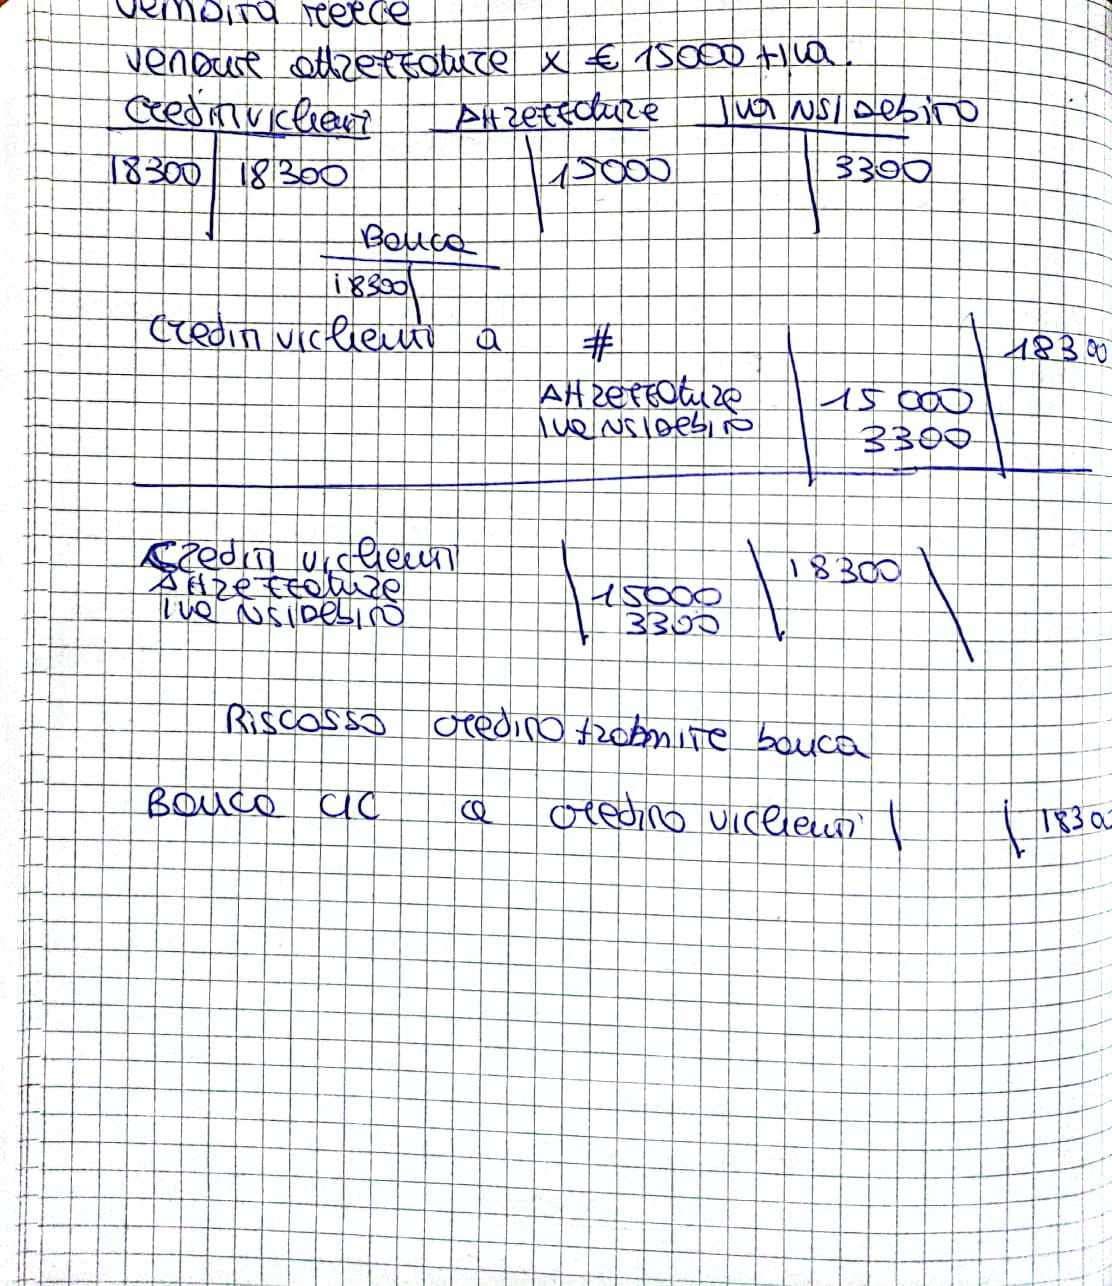 Vendita merce
vendute attrezzature x € 15000 + iva.
Crediti v/clienti Attrezzature Iva NS/Debito
18300 18300 15000 3300
Banca
18300
Crediti v/clienti a #
18300
Attrezzature 15 000
Iva NS/Debito 3300
Crediti v/clienti 18300
Attrezzature 15000
Iva NS/Debito 3300
Riscosso credito tramite banca
Banca c/c a credito v/clienti 1830